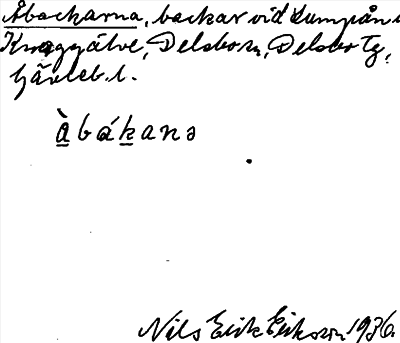 Åbackarna, backar vid Kumpån i
Knaggälve, Delsbo sn, Delsbo tg,
Gävleb. l.
àbákanə
Nils Erik Eriksson 1936.